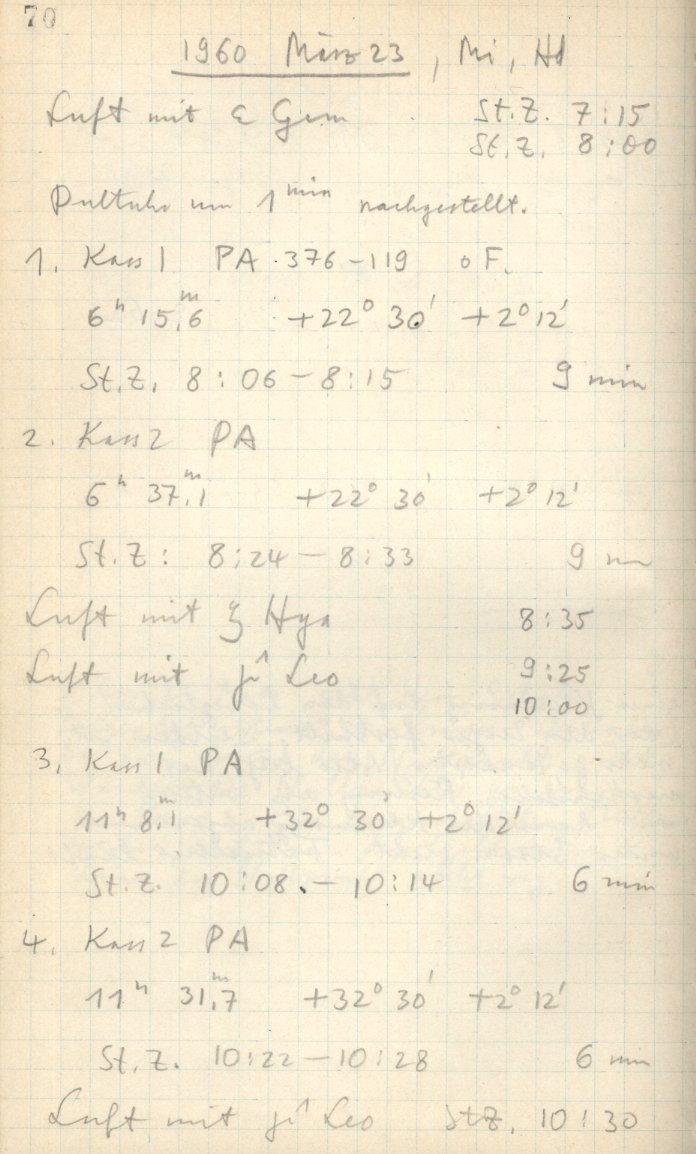 70
1960 März 23, Mi, Hd
Luft mit ε Gem St.Z. 7:15
St.Z. 8:00
Pultuhr um 1 min nachgestellt.
1. Kass 1 PA 376-119 oF.
6h 15,m6 +22° 30' +2° 12'
St.Z. 8:06 - 8:15 9 min
2. Kass 2 PA
6h 37,m1 +22° 30' +2° 12'
St.Z: 8:24 - 8:33 9 m
Luft mit ζ Hya 8:35
Luft mit γ1 Leo 9:25
10:00
3. Kass 1 PA
11h 8,m1 +32° 30' +2° 12'
St.Z. 10:08 - 10:14 6 min
4. Kass 2 PA
11h 31,m7 +32° 30' +2° 12'
St.Z. 10:22 - 10:28 6 min
Luft mit γ1 Leo StZ. 10:30